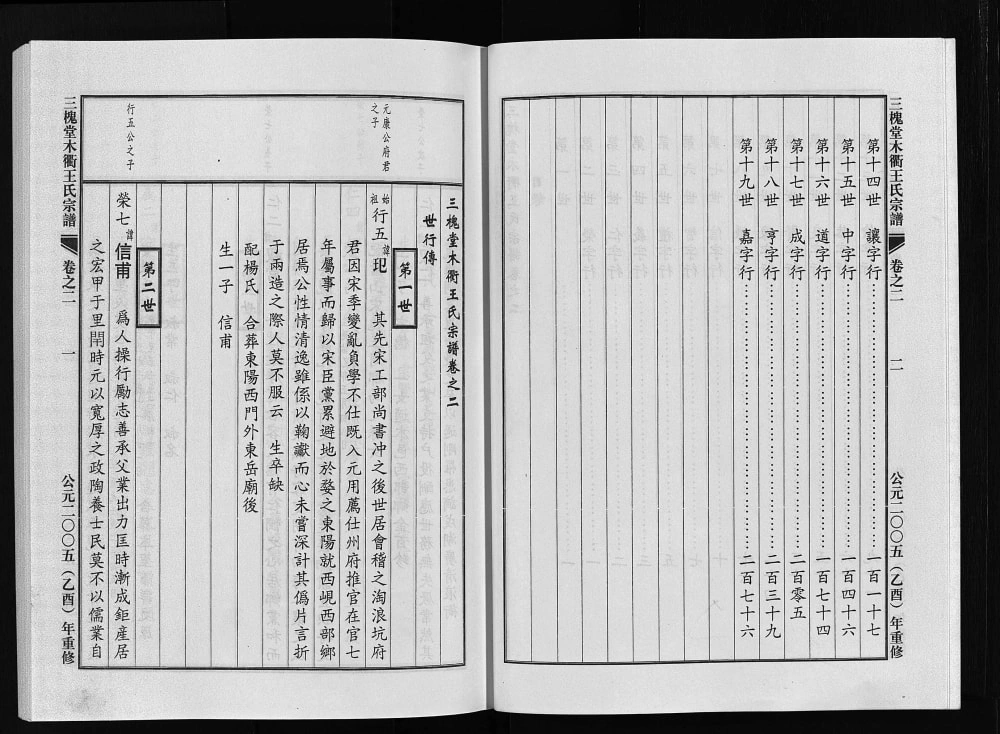 三槐堂木衢王氏宗譜 卷之二 二 公元二〇〇五（乙酉）年重修
第十四世 讓字行……一百一十七
第十五世 中字行……一百四十六
第十六世 道字行……一百七十四
第十七世 成字行……二百零五
第十八世 亨字行……二百三十九
第十九世 嘉字行……二百七十六
三槐堂木衢王氏宗譜卷之二
世行傳
第一世
元康公府君
之子
始祖 行五 諱玘 其先宋工部尚書冲之後世居會稽之淘浪坑府
君因宋季變亂負學不仕既入元用薦仕州府推官在官七
年屬事而歸以宋臣黨累避地於婺之東陽就西峴西部鄉
居焉公性情清逸雖係以鞠讞而心未嘗深計其僞片言折
于兩造之際人莫不服云 生卒缺
配楊氏 合葬東陽西門外東岳廟後
生一子 信甫
第二世
行五公之子
榮七 諱信甫 爲人操行勵志善承父業出力匡時漸成鉅産居
之宏甲于里閈時元以寬厚之政陶養士民莫不以儒業自
三槐堂木衢王氏宗譜 卷之二 一 公元二〇〇五（乙酉）年重修